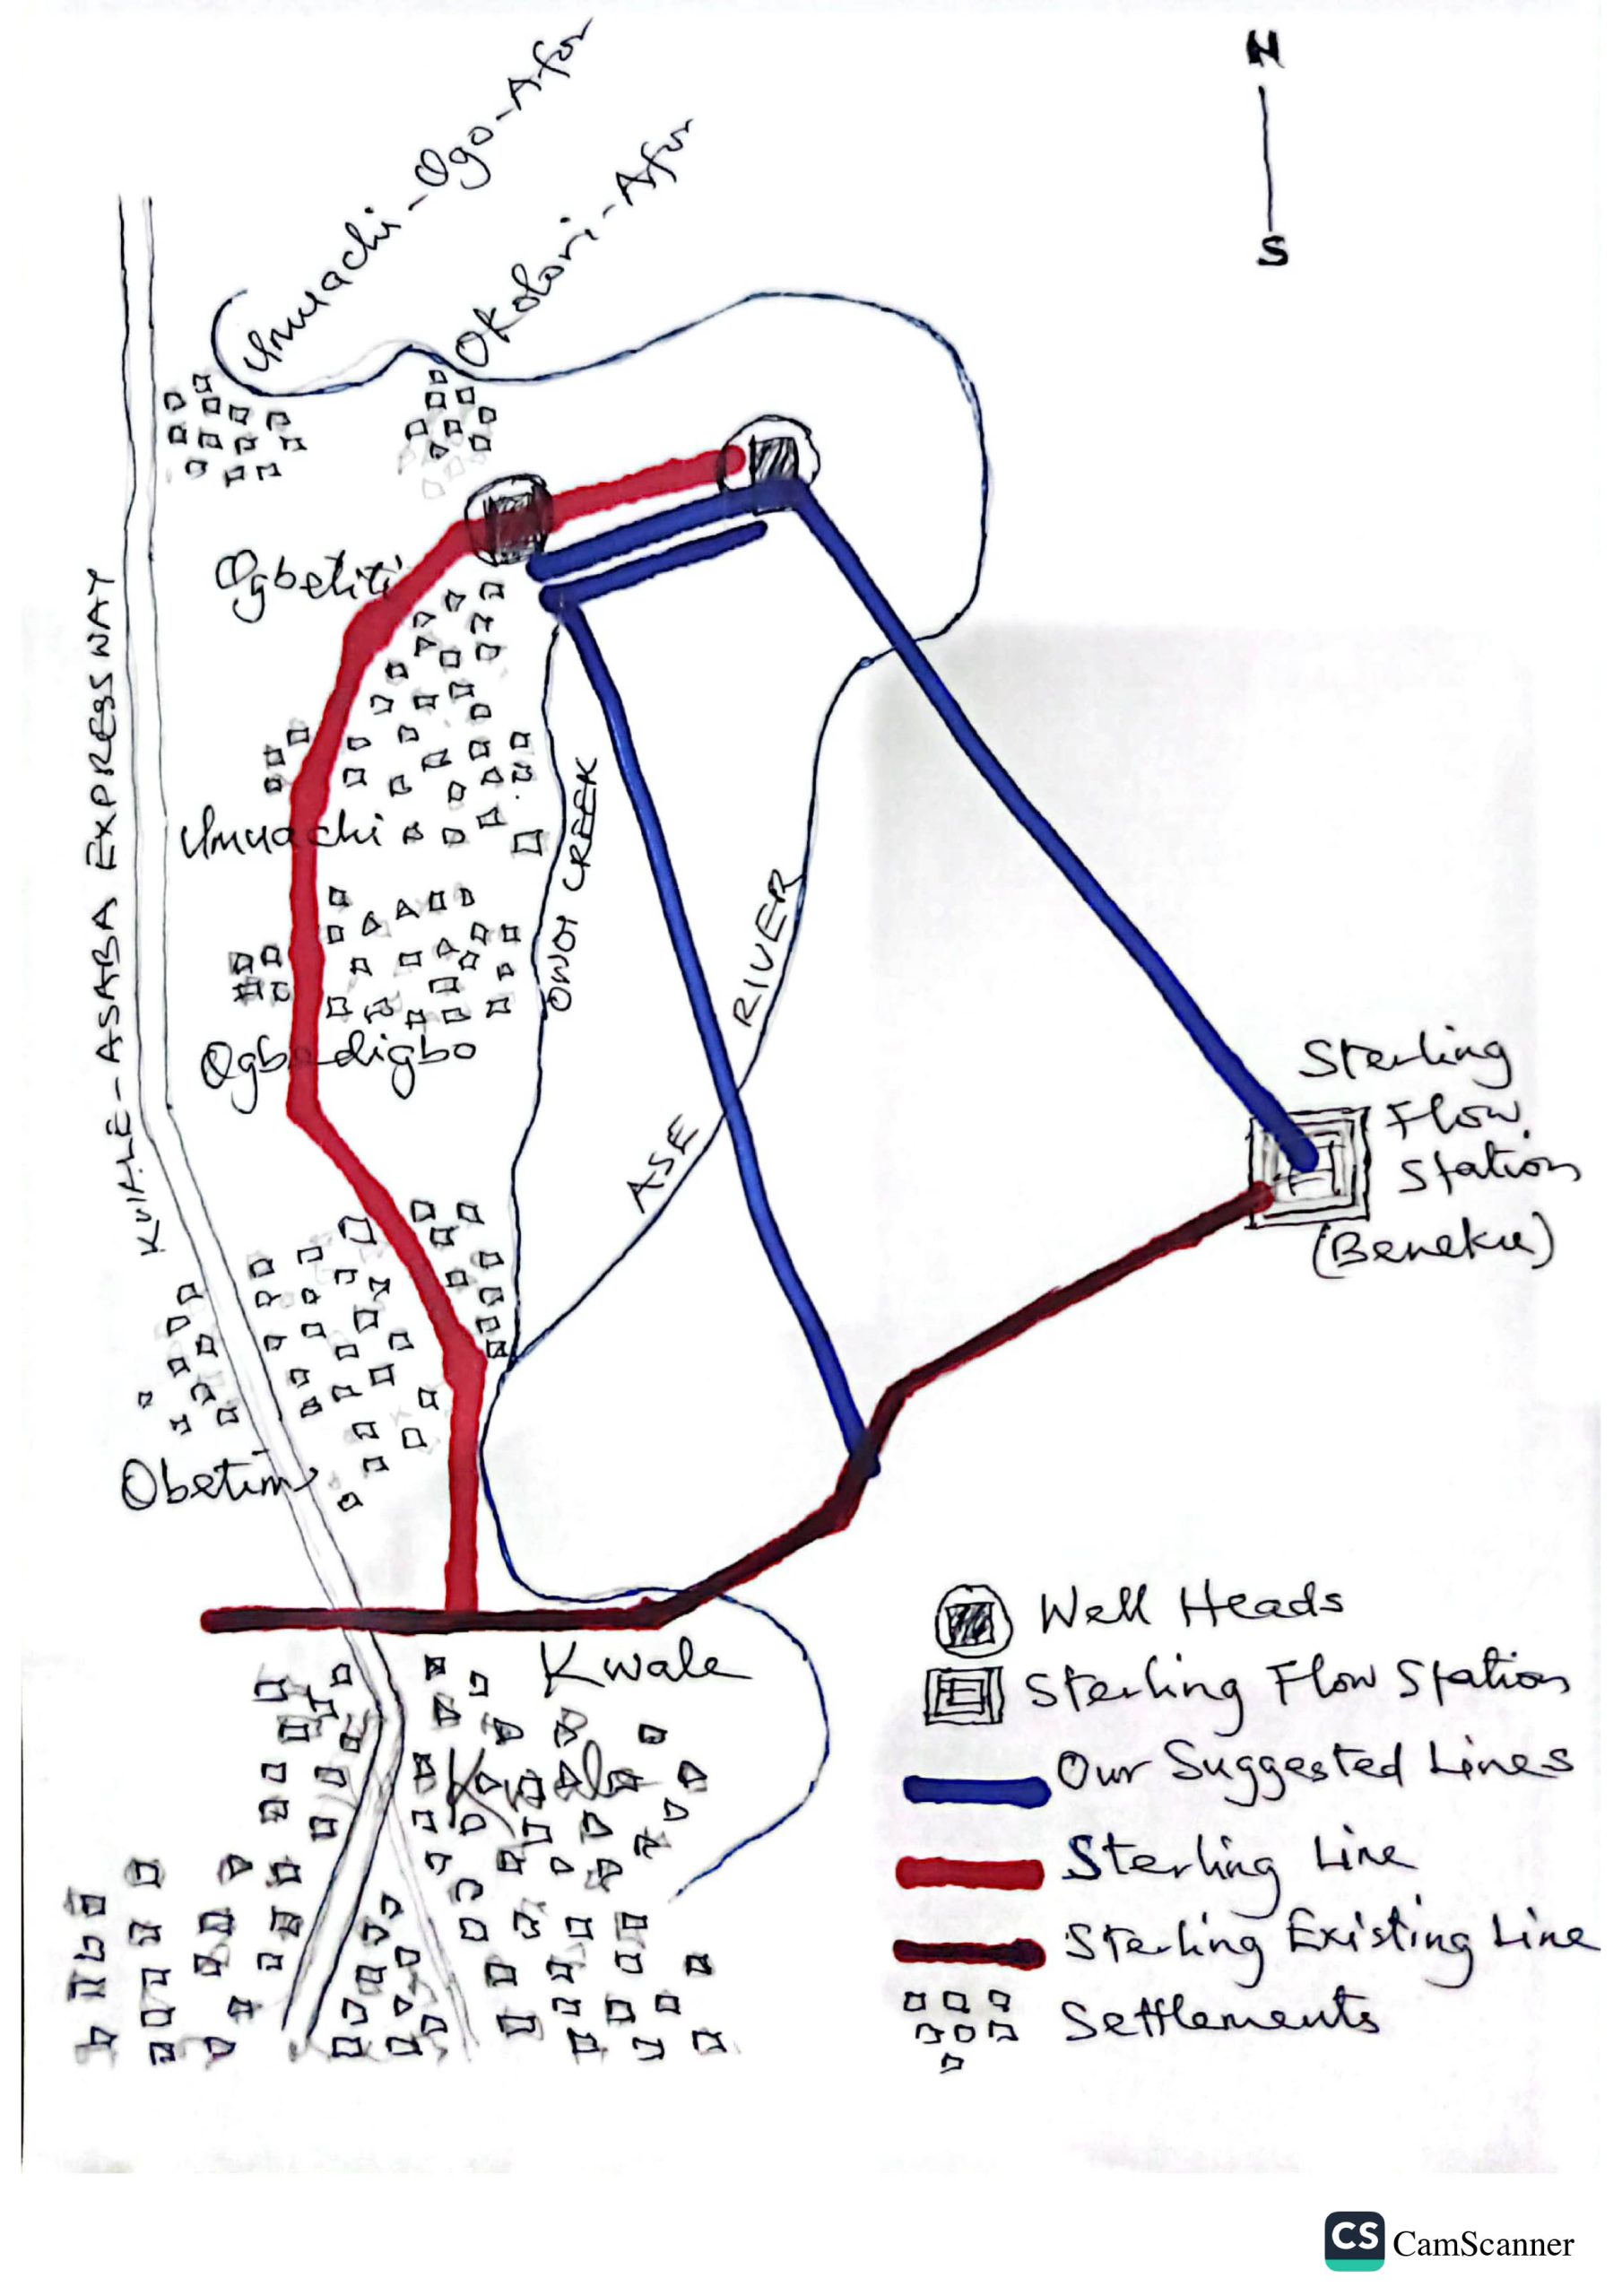 N
S
Umuachi-Ogo-Afor
Okolori-Afor
Ogbetiti
KWALE-ASABA EXPRESSWAY
Umuachi
OWOI CREEK
RIVER
ASE
Ogbodigbo
Sterling
Flow
Station
(Beneku)
Obetim
Kwale
Kwale
Well Heads
Sterling Flow Station
Our Suggested Lines
Sterling Line
Sterling Existing Line
Settlements
CS CamScanner